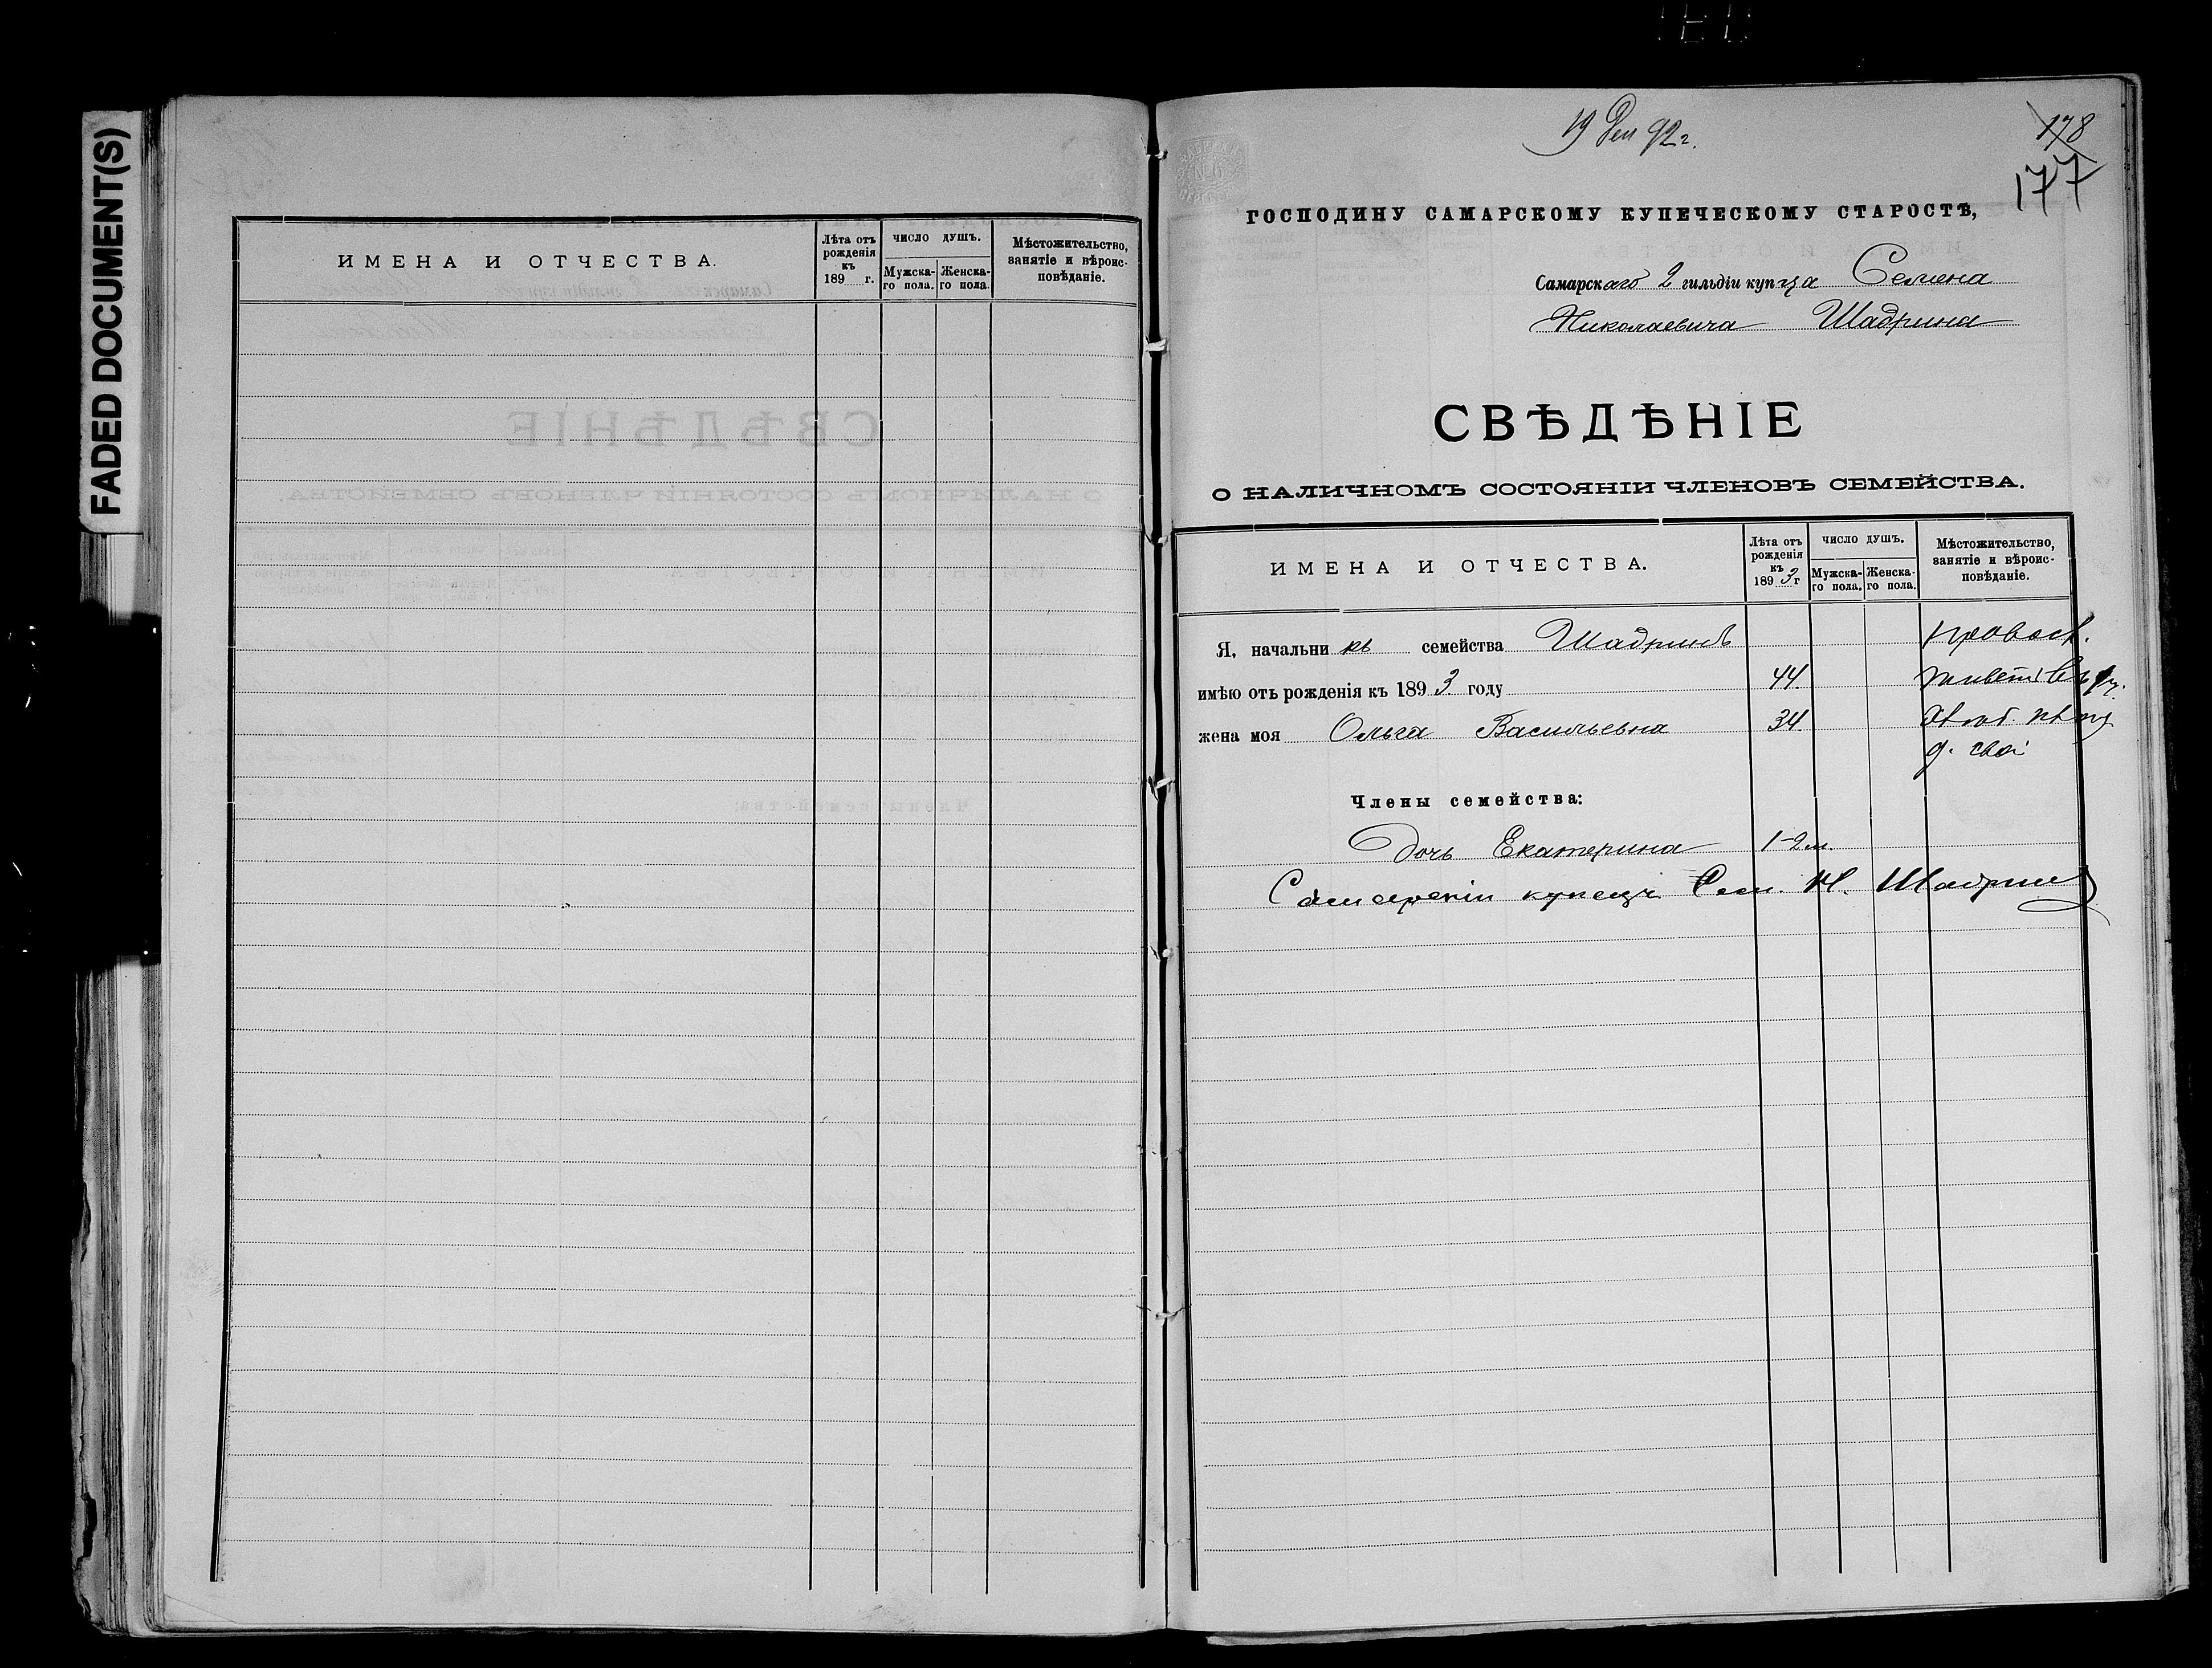 FADED DOCUMENT(S)
ИМЕНА И ОТЧЕСТВА.
Лѣта отъ рожденія къ 189 г.
ЧИСЛО ДУШЪ.
Мужска-го пола.
Женска-го пола.
Мѣстожительство, занятіе и вѣроис-повѣданіе.
19 Дек 92 г.
178
177
ГОСПОДИНУ САМАРСКОМУ КУПЕЧЕСКОМУ СТАРОСТѢ,
Самарскаго 2 гильдіи купца Семена
Николаевича Шадрина
СВѢДѢНІЕ
О НАЛИЧНОМЪ СОСТОЯНІИ ЧЛЕНОВЪ СЕМЕЙСТВА.
ИМЕНА И ОТЧЕСТВА.
Лѣта отъ рожденія къ 1893 г
ЧИСЛО ДУШЪ.
Мужска-го пола.
Женска-го пола.
Мѣстожительство, занятіе и вѣроис-повѣданіе.
Я, начальникъ семейства Шадринъ правосл.
имѣю отъ рожденія къ 1893 году 44 живетъ
жена моя Ольга Васильевна 34
д. свой
Члены семейства:
Дочь Екатерина 1-2 м.
Самарскій купецъ Сем. Н. Шадринъ